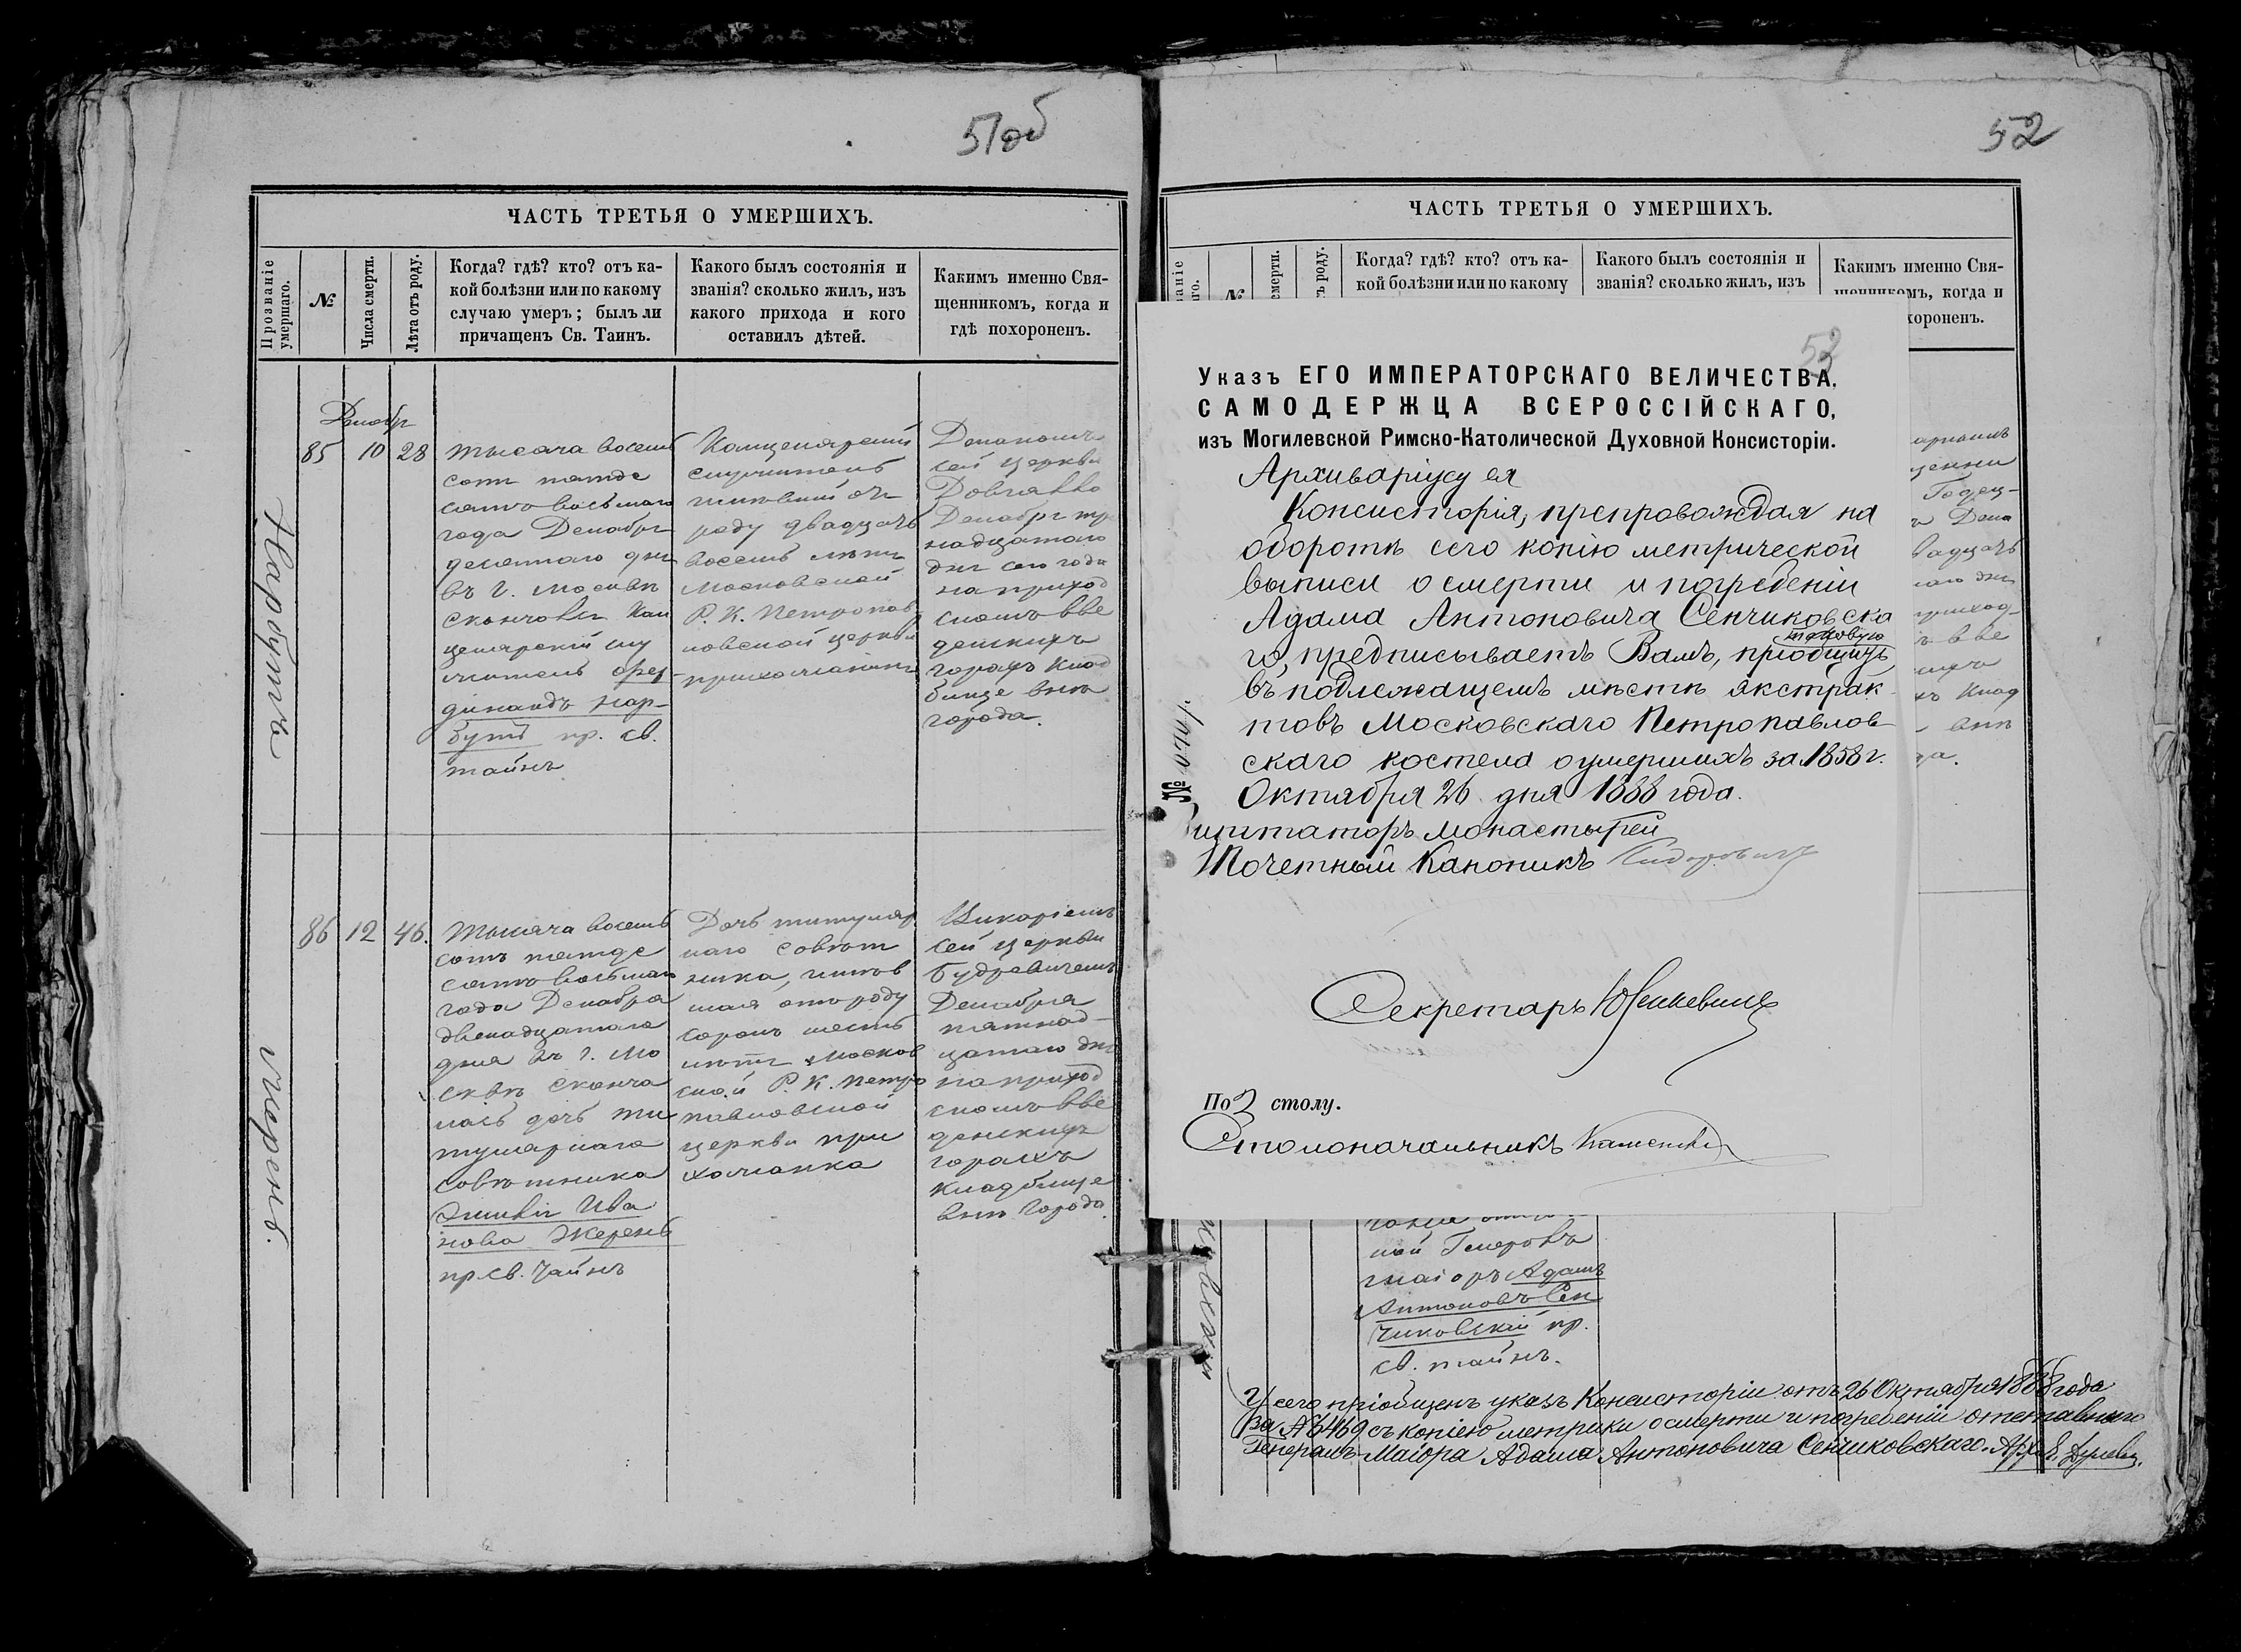 51об
ЧАСТЬ ТРЕТЬЯ О УМЕРШИХЪ.
Прозваніе умершаго.
№
Числа смерти.
Лѣта отъ роду.
Когда? гдѣ? кто? отъ ка-
кой болѣзни или по какому
случаю умеръ; былъ ли
причащенъ Св. Таинъ.
Какого былъ состоянія и
званія? сколько жилъ, изъ
какого прихода и кого
оставилъ дѣтей.
Какимъ именно Свя-
щенникомъ, когда и
гдѣ похороненъ.
Нарбутъ
Декабр
85
10
28
тысяча восемь
сотъ пятде
сятъ восьмаго
года Декабря
десятаго дня
въ г. Москвѣ
скончался Кан
целярскій слу
житель Фер
динандъ Нар-
бутъ пр. св.
тайнъ
Канцелярскій
служитель
жившій отъ
роду двадцать
восемь лѣтъ
Московской
Р. К. Петропав
ловской церкви
прихожанинъ
Деканомъ
сей церкви
Декабря три
надцатаго
дня сего года
на приход
скомъ вве
денскихъ
горахъ клад
бищѣ внѣ
города.
Жеренъ.
86
12
46.
Тысяча восемь
сотъ пятде
сятъ восьмаго
года Декабря
двенадцатаго
дня въ г. Мо
сквѣ сконча
лась дочь ти
тулярнаго
совѣтника
Эмилія Ива
нова Жеренъ
пр. св. Тайнъ
Дочь титуляр
наго совѣт
ника, жив
шая отъ роду
сорокъ шесть
лѣтъ Москов
ской Р. К. Петро
павловской
церкви при
хожанка
Викаріемъ
сей церкви
Будревичемъ
Декабря
пятнад-
цатаго дня
на приход
скомъ вве
денскихъ
горахъ
кладбищѣ
внѣ города.
52
ЧАСТЬ ТРЕТЬЯ О УМЕРШИХЪ.
Когда? гдѣ? кто? отъ ка-
кой болѣзни или по какому
Какого былъ состоянія и
званія? сколько жилъ, изъ
Какимъ именно Свя-
щенникомъ, когда и
хороненъ.
53
Указъ ЕГО ИМПЕРАТОРСКАГО ВЕЛИЧЕСТВА,
САМОДЕРЖЦА ВСЕРОССІЙСКАГО,
изъ Могилевской Римско-Католической Духовной Консисторіи.
Архиваріусу ея
Консисторія, препровождая на
оборотѣ сего копію метрической
выписи о смерти и погребеніи
Адама Антоновича Сенчиковска
го, предписываетъ Вамъ, пріобщить таковую
въ подлежащемъ мѣстѣ экстрак-
товъ Московскаго Петропавлов-
скаго костела о умершихъ за 1858 г.
Октября 26 дня 1888 года.
№
Визитаторъ Монастырей
Почетный Каноникъ
Секретарь
По 2 столу.
Столоначальникъ
ной Генералъ
маіоръ Адамъ
Антоновъ Сен
чиковскій пр.
св. тайнъ.
У сего пріобщенъ указъ Консисторіи отъ 26 Октября 1888 года
за № 6469 съ копіею метрики о смерти и погребеніи отставнаго
Генералъ-Маіора Адама Антоновича Сенчиковскаго.